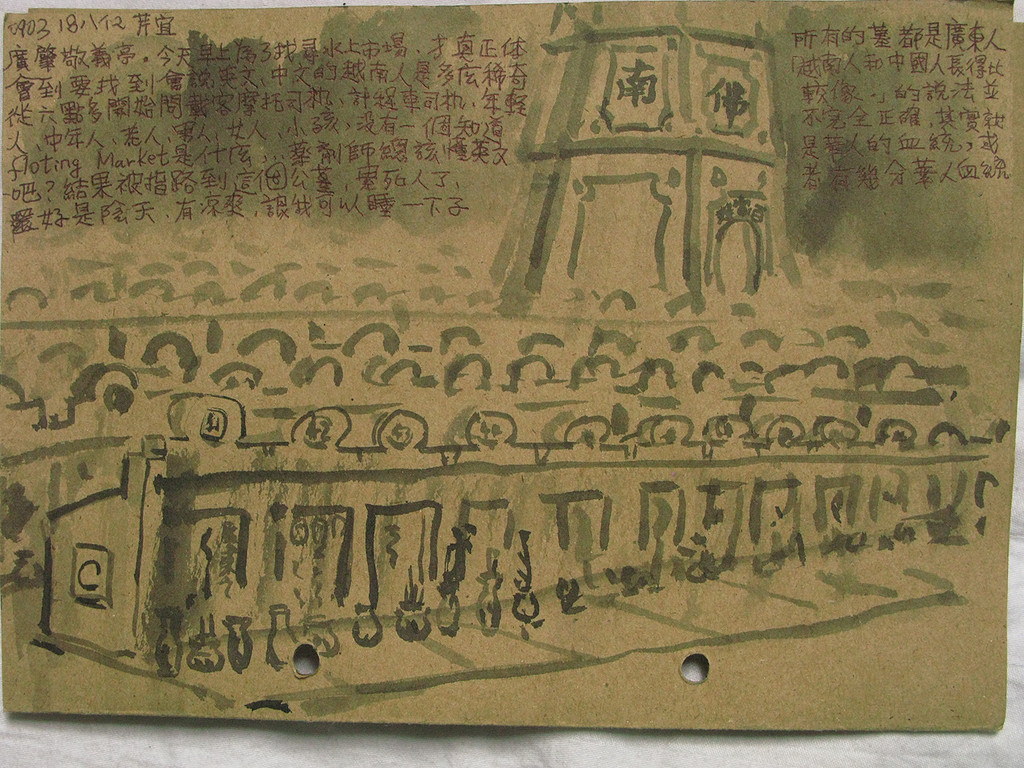 0903 18八仫 芹宜
廣肇敬義亭。今天早上為了找尋水上市場，才真正体
會到要找到會說英文、中文的越南人是多麼稀奇
從六點多開始問載客摩托司机、計程車司机、年輕
人、中年人、老人、軍人、女人、小孩，没有一個知道
floting Market是什庅，藥剤師總該懂英文
吧？結果被指路到這個公墓，累死人了，
最好是陰天，有涼爽，讓我可以睡一下子
所有的墓都是廣東人
「越南人和中國人長得比
較像」的說法並
不完全正確，其實就
是華人的血統，或
者有幾分華人血統
南
佛